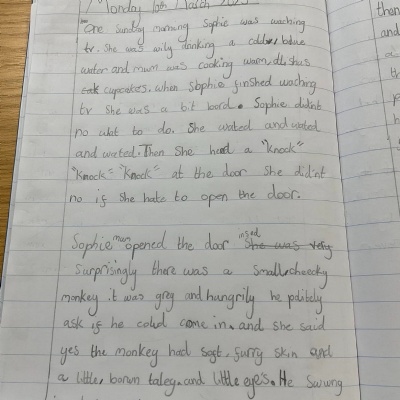 Monday 10th March 2025
One sunday morning Sophie was waching
tv. She was wily danking a cold, blue
water and mum was cooking warm, dlishas
cupcakes, when Sophie finshed waching
tv She was a bit bord. Sophie didn't
no wat to do. She wated and wated
and wated. Then she herd a "knock"
"knock" "knock" at the door she didn't
no if she hate to open the door.
Sophie mum opened the door insed She was very
Surprisingly there was a small, cheecky
monkey it was grey and hungrily he politely
ask if he cold come in. and she said
yes the monkey had soft, furry skin and
a little, borwn taley. and little eye's. He Swung
than
and